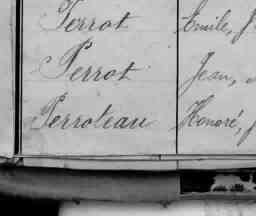 Perrot Emile, J
Perrot Jean,
Perroteau Honoré, J